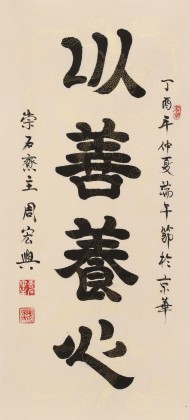 以善養心
丁酉年仲夏端午節於京華
崇石齋主周宏興